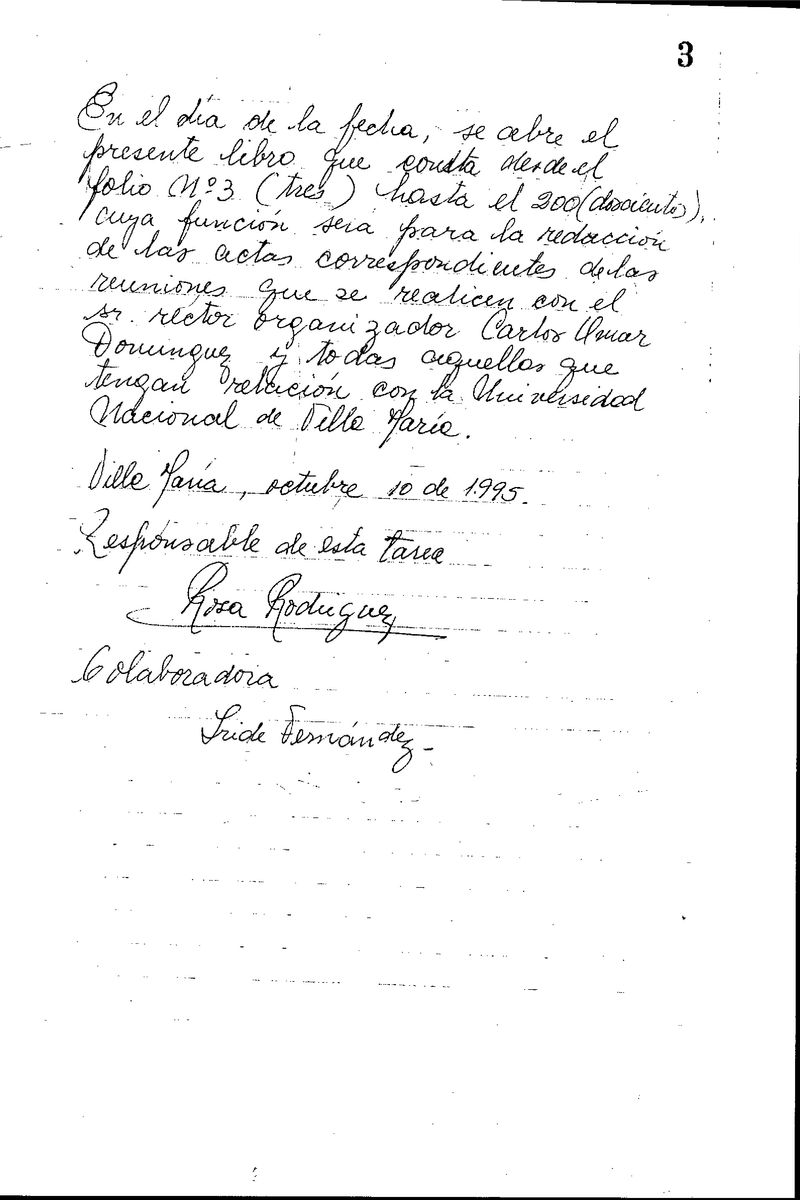 3
En el día de la fecha, se abre el
presente libro que consta desde el
folio Nº3 (tres) hasta el 200 (doscientos),
cuya función será para la redacción
de las actas correspondientes de las
reuniones que se realicen con el
sr. rector organizador Carlos Omar
Dominguez y todas aquellas que
tengan relación con la Universidad
Nacional de Villa María.
Villa María, octubre 10 de 1.995.
Responsable de esta tarea
Rosa Rodriguez
Colaboradora
Iride Fernández -